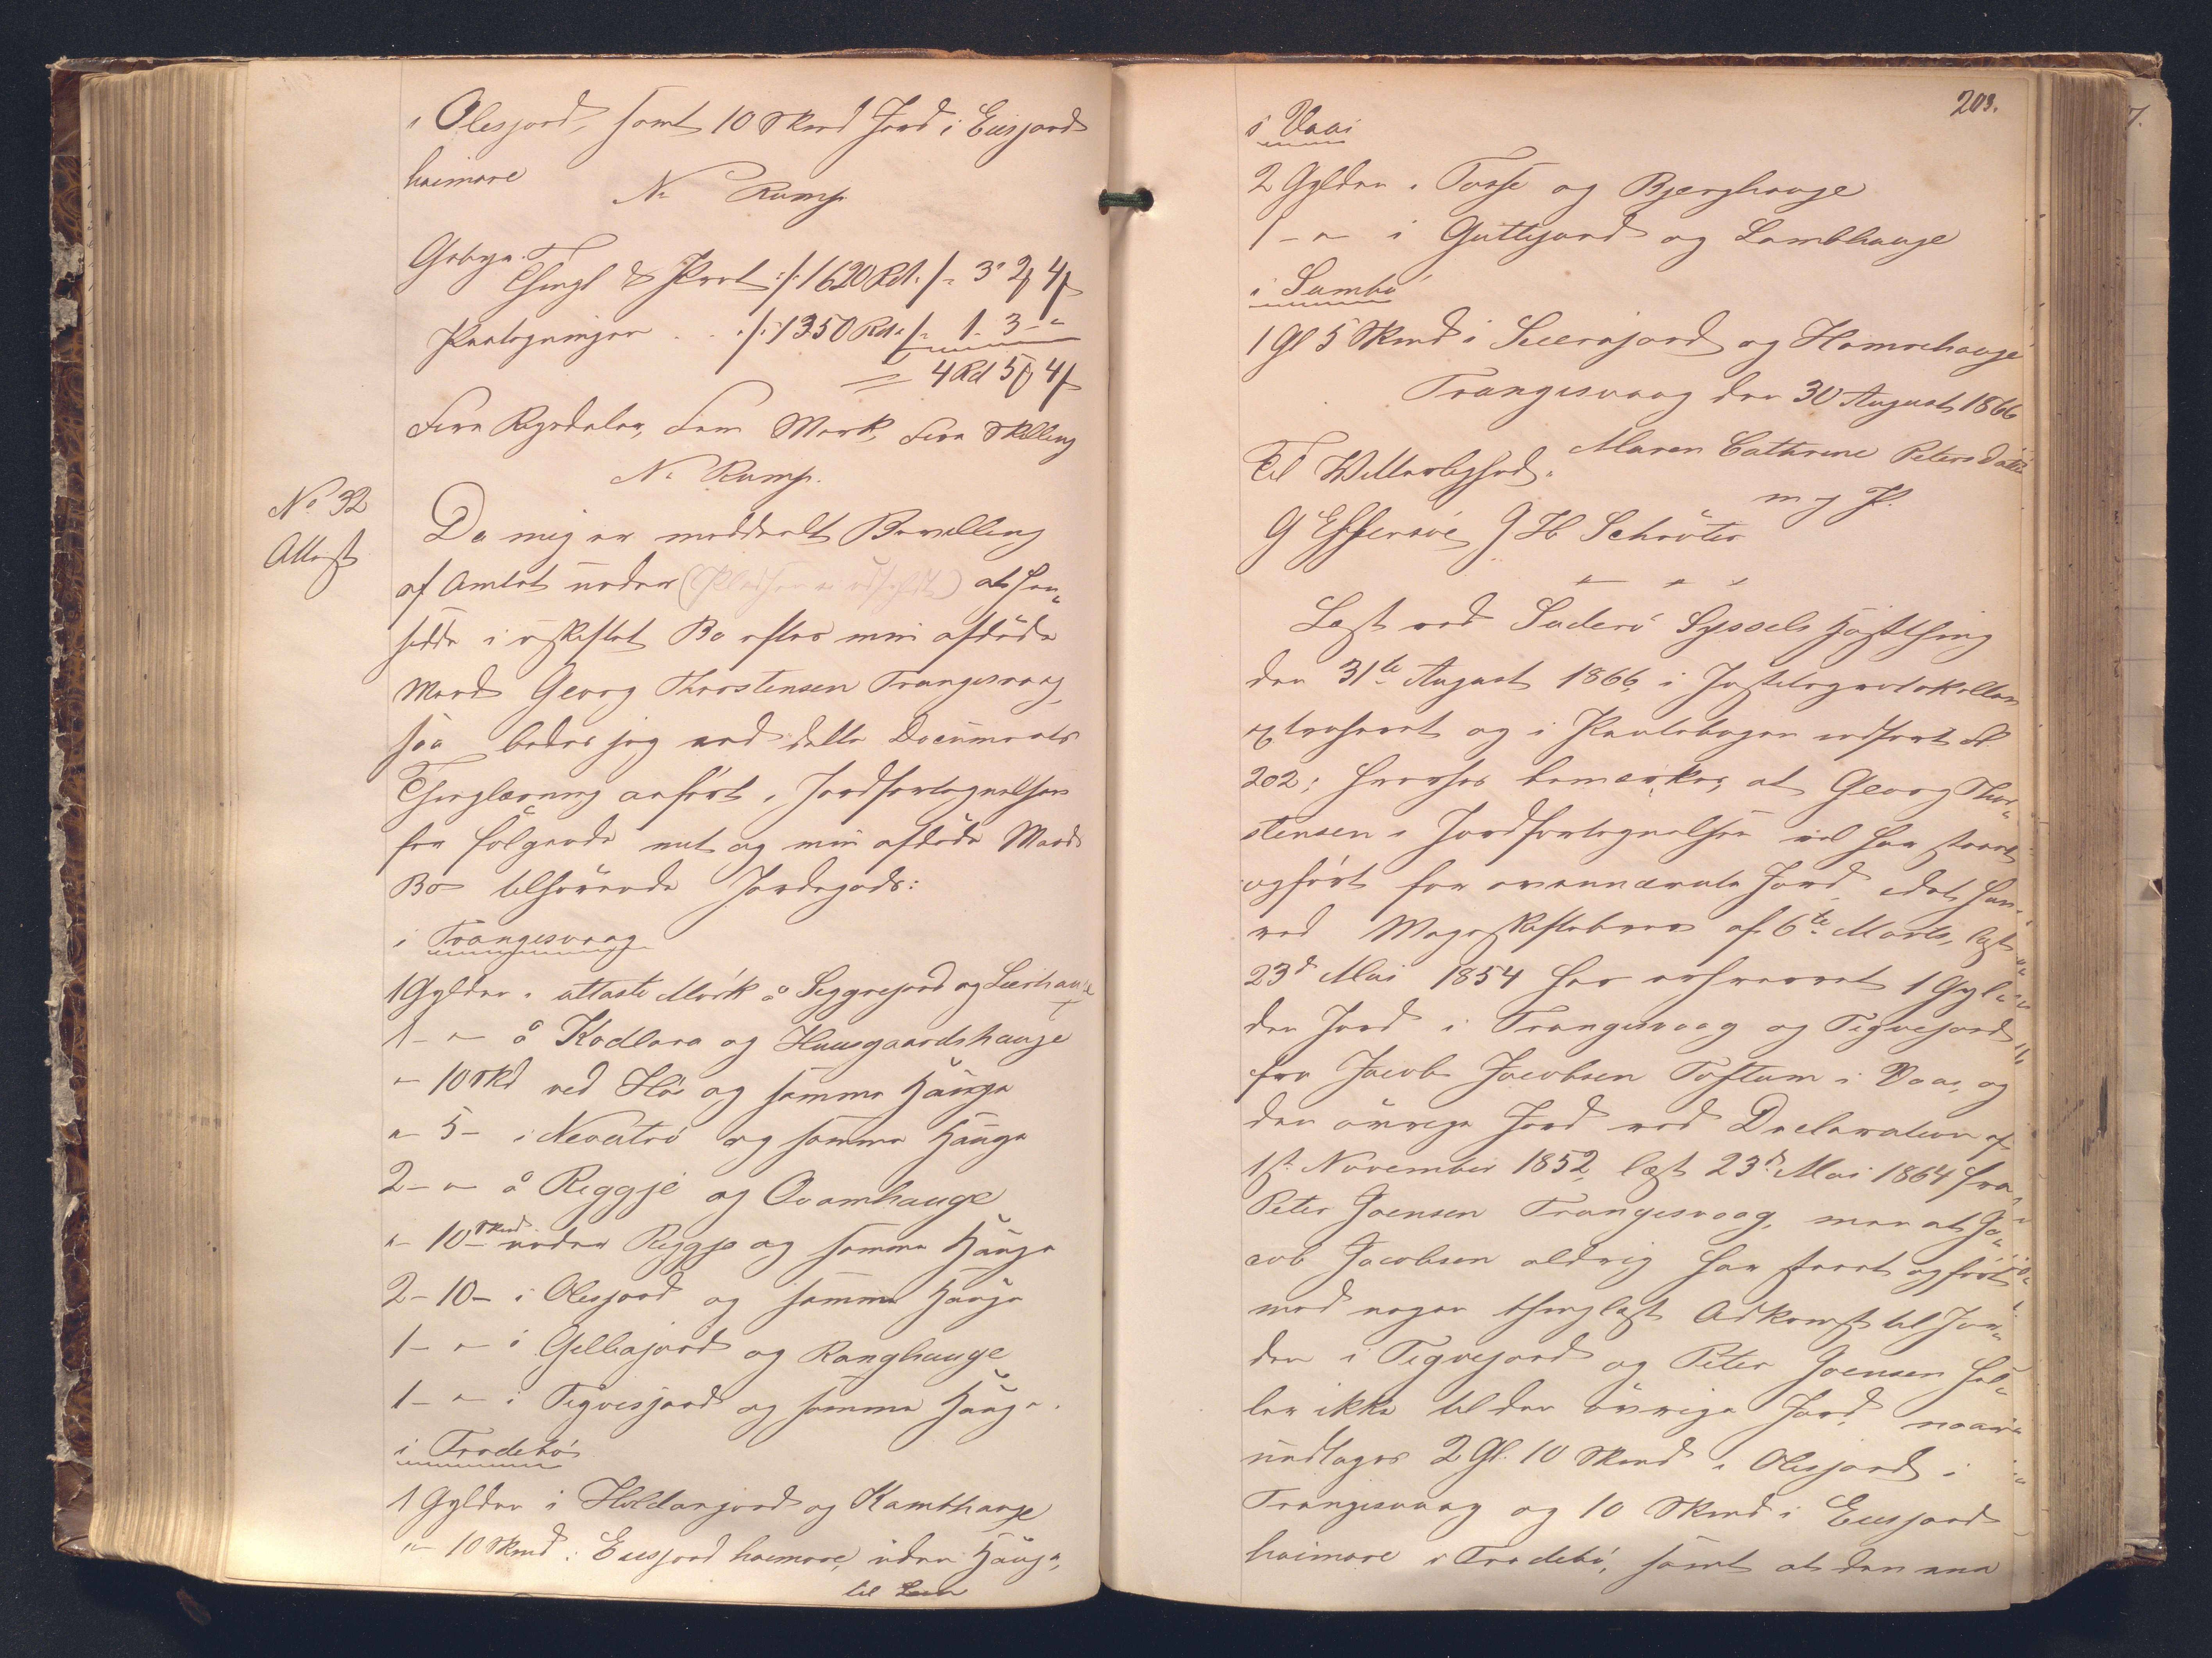 i Olesjord, samt 10 Skind Jord i Eusjord
heimare
N. Rump.
Gebyr.
Thingl & Prot :/: 1620 Rd. /: 3" 2 4
Paategningen . . :/: 1350 Rd. /: 1. 3 - "
= 4 Rd 5 4
Fire Rigsdaler, Fem Mark, Fire Skilling
N. Rump.
No 32
Attest
Da mig er meddeelt Bevilling
af Amtet under (Pladsen ei udfyldt) at hen-
sidde i uskiftet Bo efter min afdøde
Mand Georg Thorstensen Trangesvaag,
saa bedes jeg ved dette Documents
Thinglæsning anført i Jordfortegnelsen
for følgende mit og min afdøde Mands
Bo tilhørende Jordegods:
i Trangesvaag
1 Gylden i uttaste Mörk å Seggrejord og Leerhauge
1 - " - å Kodlara og Huusgaardshauge
" - 10 Skd ved Flö og samme Hauge
" - 5 - i Neveitrö og samme Hauge
2 - " - å Reggje og Ovamhauge
" - 10 Skind nedan Reggje og samme Hauge
2 - 10 - i Olesjord og samme Hauge
1 - " - i Gelliajord og Ranghauge
1 - " - i Tigvesjord og samme Hauge.
i Trodebö
1 Gylden i Holdanjord og Kambhauge
" - 10 Skind i Eusjord heimare, uden Hauge,
203.
i Vaai
2 Gylden i Tosse og Bjerghauge
1 - " - i Guttejord og Lambhauge
i Sumbö
1 Gl 5 Skind i Leerajord og Hamrehauge
Trangesvaag den 30 August 1866
Maren Cathrine Petersdatter
Til Vitterlighed: m. f. P.
G Effersöe J H Schröter
Læst ved Suderö Syssels Høstthing
den 31te August 1866, i Justitsprotokollen
extraheret og i Pantebogen indført Fol
202; hvorhos bemærkes, at Georg Thor-
stensen i Jordfortegnelsen vel har staaet
opført for ovennævnte Jord, idet han
ved Mageskiftebrev af 6te Marts, læst
23de Mai 1854 har erhvervet 1 Gyl-
den Jord i Trangesvaag og Tigvejord
fra Jacob Jacobsen Toftum i Vaai, og
den øvrige Jord ved Declaration af
1ste November 1852, læst 23de Mai 1864 fra
Peter Joensen Trangesvaag, men at Ja-
cob Jacobsen aldrig har staaet opført
med nogen thinglæst Adkomst til Jor-
den i Tigvejord og Peter Joensen hel-
ler ikke til den øvrige Jord, naar
undtages 2 Gl. 10 Skind i Olesjord i
Trangesvaag og 10 Skind i Eusjord
heimare i Trodebö, samt at den ene